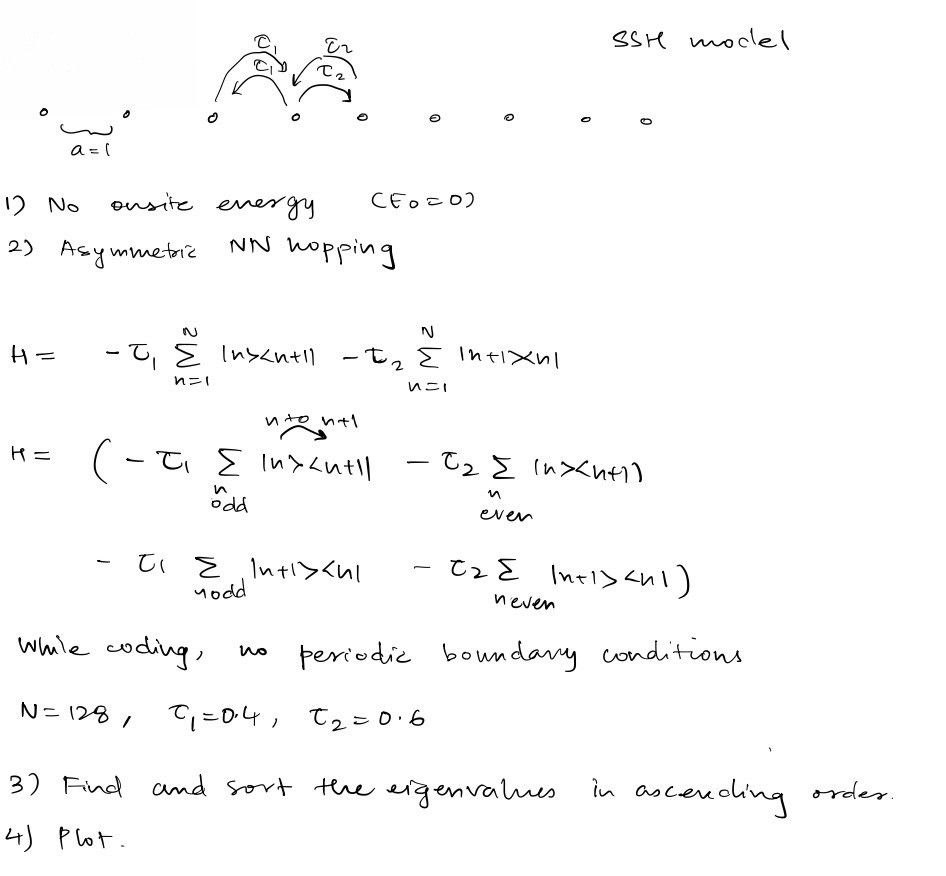 SSH model
τ₁ τ₂
τ₁ τ₂
a=1
1) No onsite energy (E₀=0)
2) Asymmetric NN hopping
H = -τ₁ Σ_{n=1}^{N} |n><n+1| -τ₂ Σ_{n=1}^{N} |n+1><n|
n to n+1
H = (-τ₁ Σ_{n odd} |n><n+1| - τ₂ Σ_{n even} |n><n+1|
- τ₁ Σ_{n odd} |n+1><n| - τ₂ Σ_{n even} |n+1><n|)
While coding, no periodic boundary conditions
N=128, τ₁=0.4, τ₂=0.6
3) Find and sort the eigenvalues in ascending order.
4) Plot.